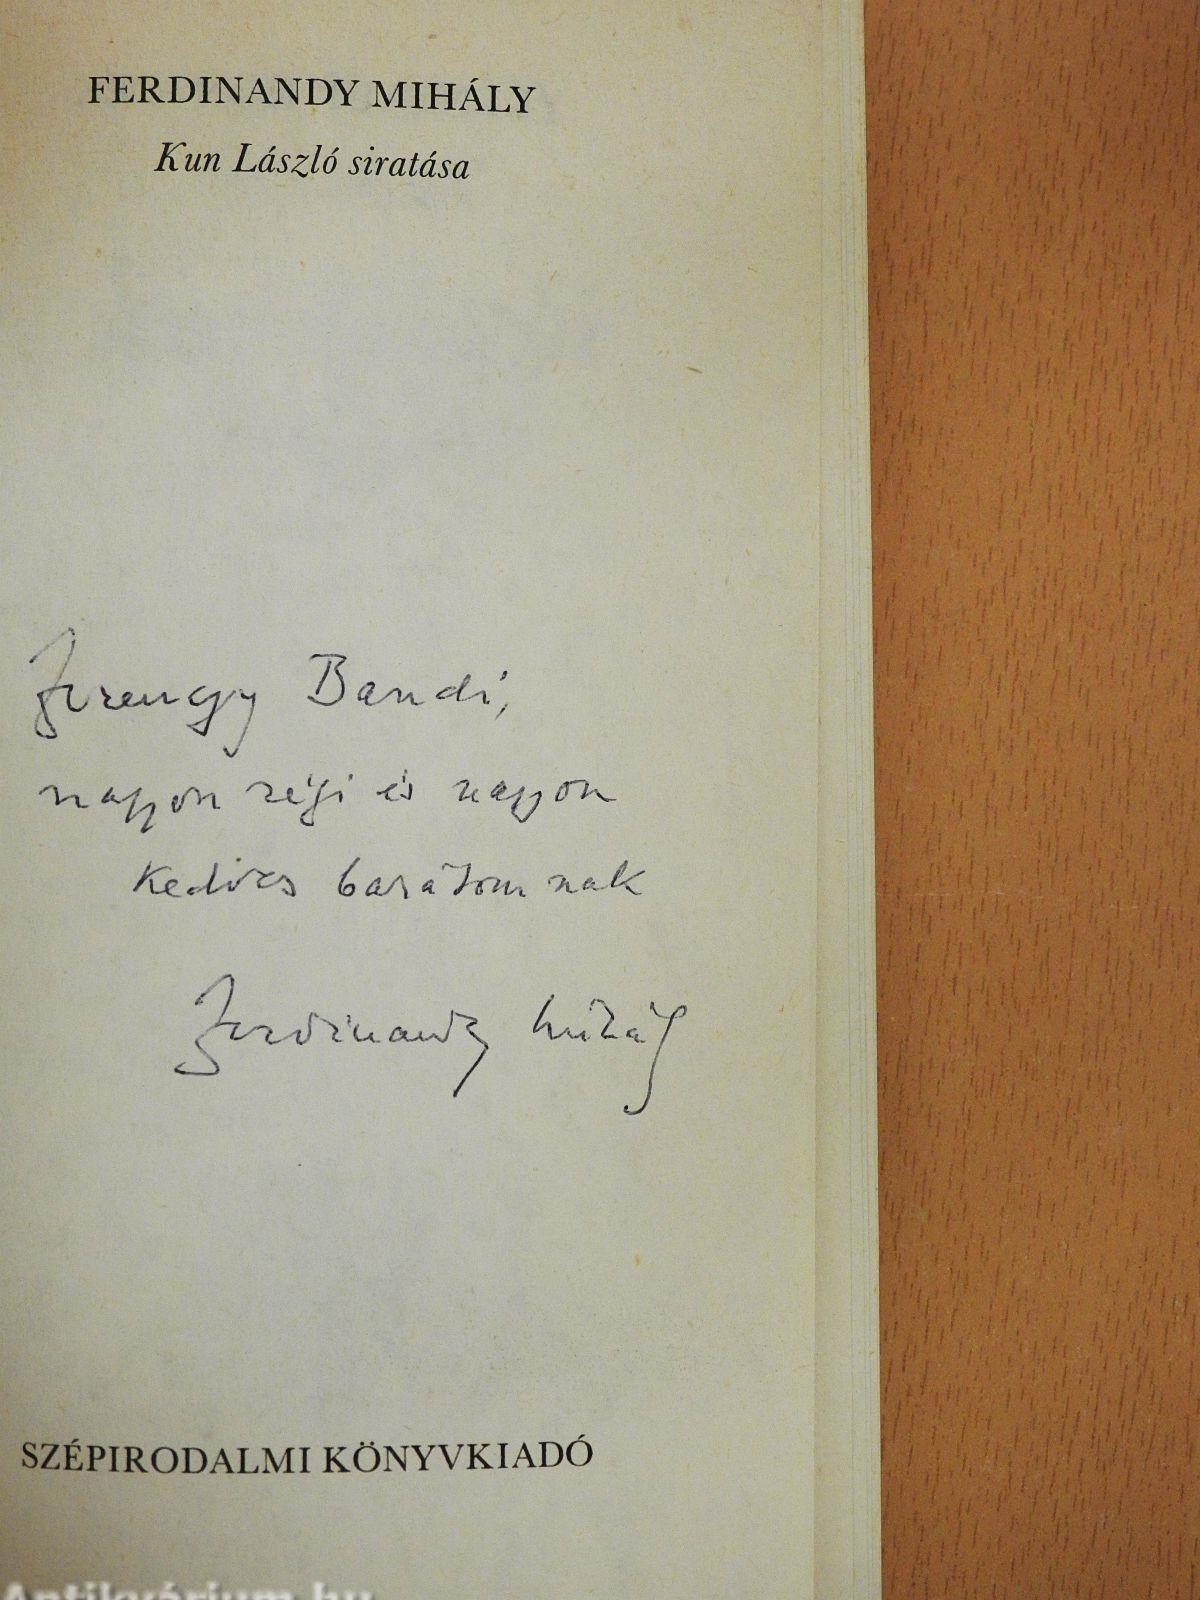 FERDINANDY MIHÁLY
Kun László siratása
Bandi,
nagyon régi és nagyon
kedves barátomnak
Ferdinandy Mihály
SZÉPIRODALMI KÖNYVKIADÓ
Antikvárium.hu